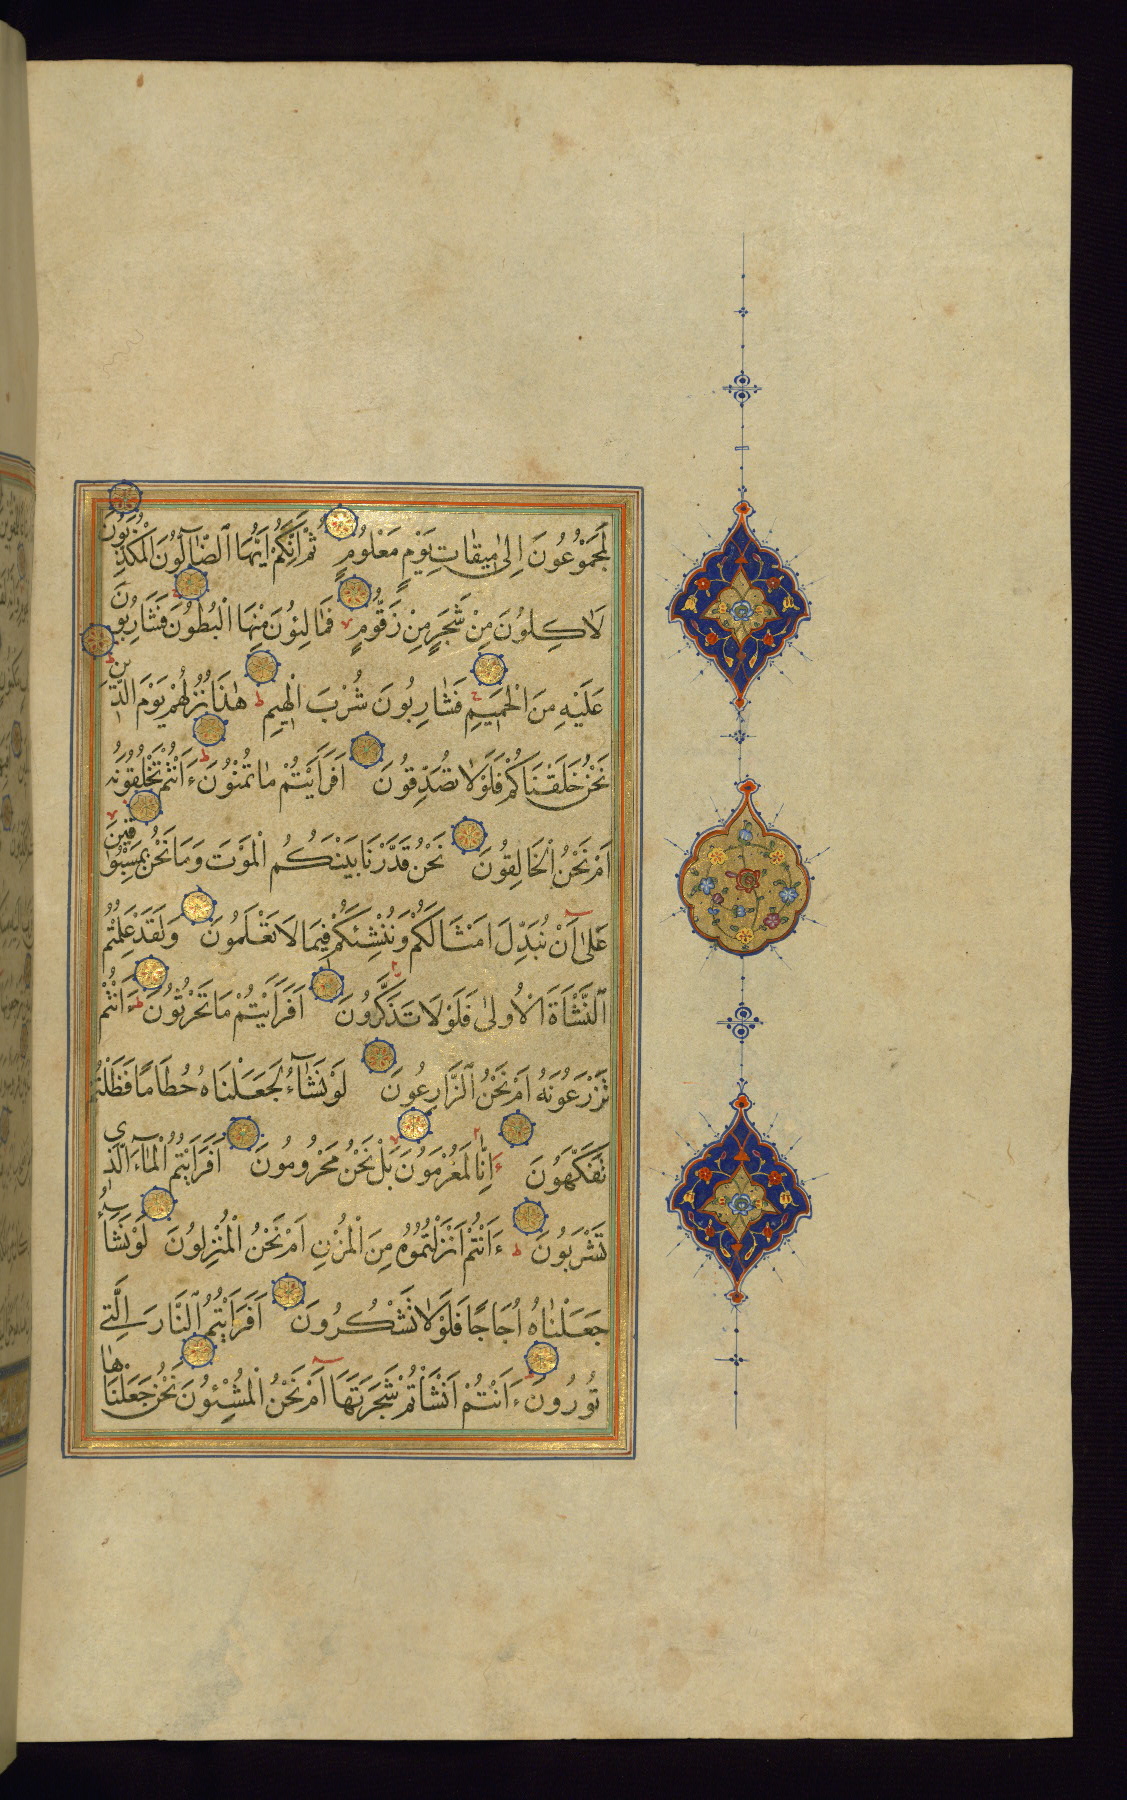 لَمَجْمُوعُونَ اِلٰى مِيقَاتِ يَوْمٍ مَعْلُومٍ ثُمَّ اِنَّكُمْ اَيُّهَا الضَّٓالُّونَ الْمُكَذِّبُونَ
لَاٰكِلُونَ مِنْ شَجَرٍ مِنْ زَقُّومٍ فَمَالِئُونَ مِنْهَا الْبُطُونَ فَشَارِبُونَ
عَلَيْهِ مِنَ الْحَمِيمِ فَشَارِبُونَ شُرْبَ الْهِيمِ هٰذَا نُزُلُهُمْ يَوْمَ الدِّينِ
نَحْنُ خَلَقْنَاكُمْ فَلَوْلَا تُصَدِّقُونَ اَفَرَاَيْتُمْ مَا تُمْنُونَ ءَاَنْتُمْ تَخْلُقُونَهُ
اَمْ نَحْنُ الْخَالِقُونَ نَحْنُ قَدَّرْنَا بَيْنَكُمُ الْمَوْتَ وَمَا نَحْنُ بِمَسْبُوقِينَ
عَلٰى اَنْ نُبَدِّلَ اَمْثَالَكُمْ وَنُنْشِئَكُمْ فِيمَا لَا تَعْلَمُونَ وَلَقَدْ عَلِمْتُمُ
النَّشْاَةَ الْاُولٰى فَلَوْلَا تَذَكَّرُونَ اَفَرَاَيْتُمْ مَا تَحْرُثُونَ ءَاَنْتُمْ
تَزْرَعُونَهُ اَمْ نَحْنُ الزَّارِعُونَ لَوْ نَشَٓاءُ لَجَعَلْنَاهُ حُطَامًا فَظَلْتُمْ
تَفَكَّهُونَ اِنَّا لَمُغْرَمُونَ بَلْ نَحْنُ مَحْرُومُونَ اَفَرَاَيْتُمُ الْمَٓاءَ الَّذِي
تَشْرَبُونَ ءَاَنْتُمْ اَنْزَلْتُمُوهُ مِنَ الْمُزْنِ اَمْ نَحْنُ الْمُنْزِلُونَ لَوْ نَشَٓاءُ
جَعَلْنَاهُ اُجَاجًا فَلَوْلَا تَشْكُرُونَ اَفَرَاَيْتُمُ النَّارَ الَّتِي
تُورُونَ ءَاَنْتُمْ اَنْشَاْتُمْ شَجَرَتَهَا اَمْ نَحْنُ الْمُنْشِئُونَ نَحْنُ جَعَلْنَاهَا